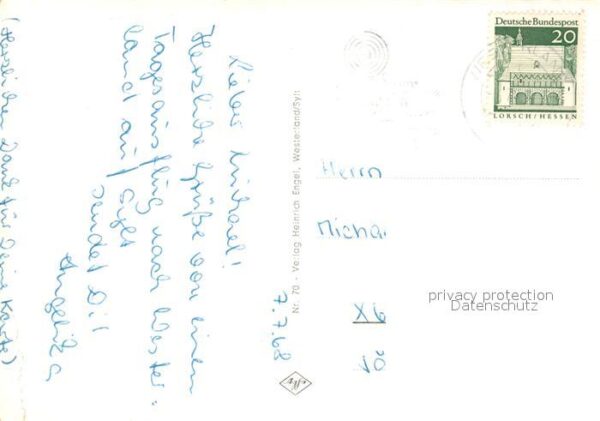 Lieber Michael!
Herzliche Grüße von einem
Tagesausflug nach Wester=
land auf Sylt
sendet Dir
Angelika
(Herzlichen Dank für Deine Karte)
7.7.68
Nr. 70 - Verlag Heinrich Engel, Westerland/Sylt
Deutsche Bundespost
20
LORSCH/HESSEN
Herrn
Micha
privacy protection
Datenschutz
X6